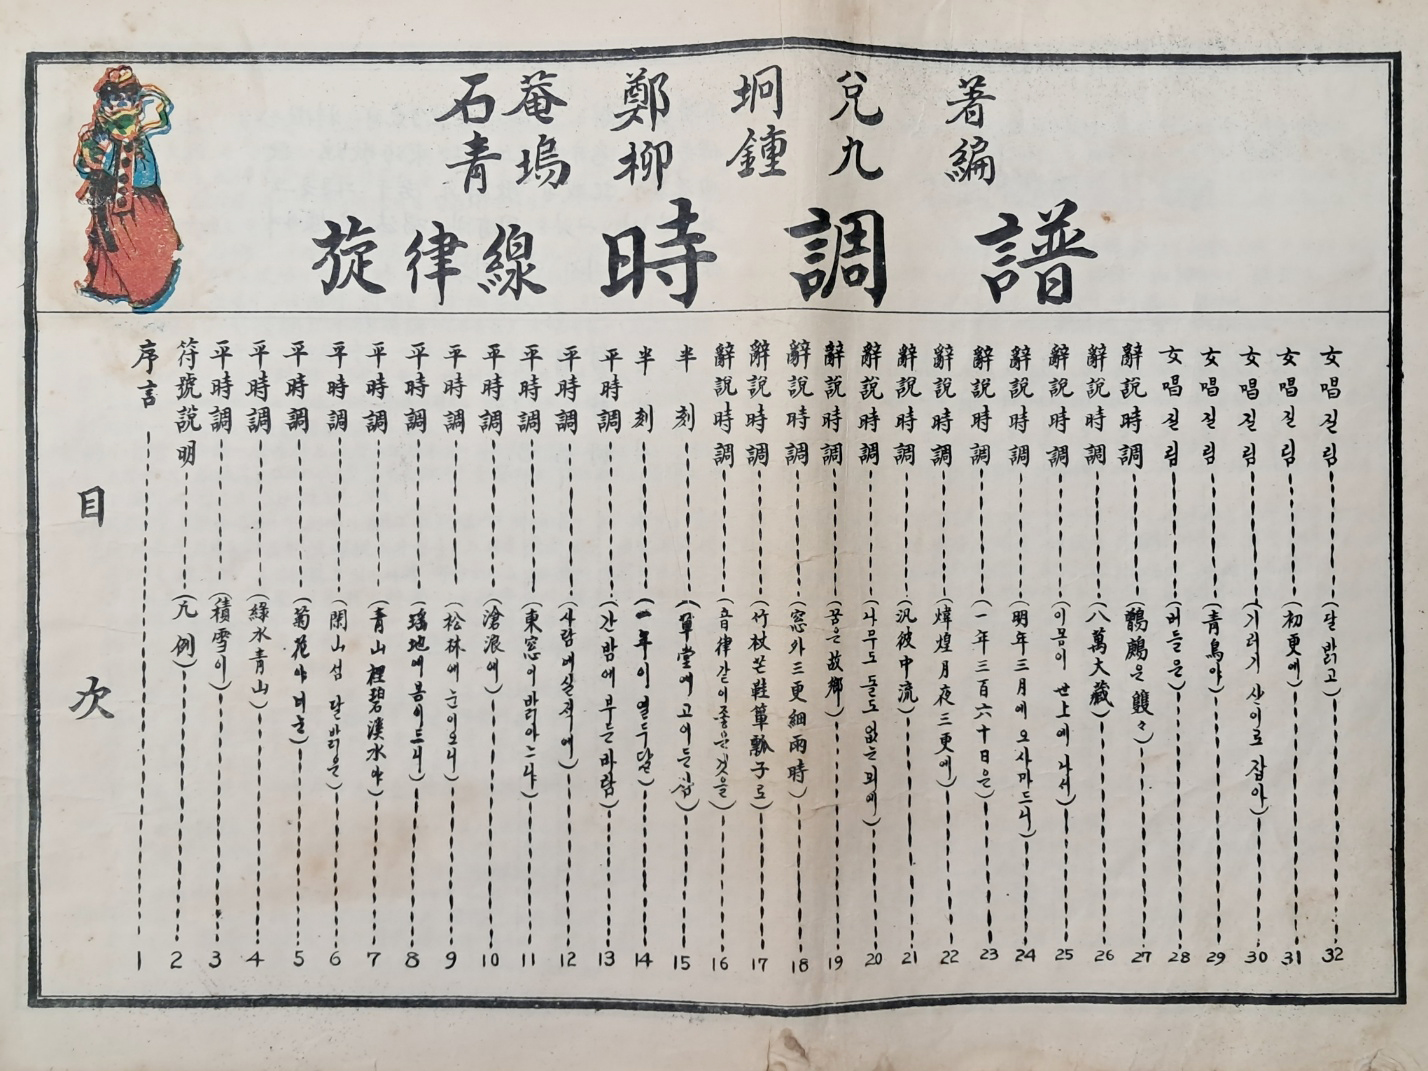 石菴 鄭坰兌 著
青塢 柳鍾九 編
旋律線 時調譜
目次
序言 1
符號說明 (凡例) 2
平時調 (積雪이) 3
平時調 (綠水青山) 4
平時調 (菊花야 너는) 5
平時調 (閑山섬 달 밝은) 6
平時調 (青山裡碧溪水야) 7
平時調 (瑤池에 봄이드니) 8
平時調 (松林에 눈이오니) 9
平時調 (滄浪에) 10
平時調 (東窓이 밝아느냐) 11
平時調 (사람에실적에) 12
平時調 (간밤에 부든 바람) 13
半刻 (一年이 열두달) 14
半刻 (草堂에 고이든잠) 15
辭說時調 (音律같이좋은것을) 16
辭說時調 (竹杖芒鞋簞瓢子로) 17
辭說時調 (窓外三更細雨時) 18
辭說時調 (꿈은故鄉) 19
辭說時調 (나무도 돌도 없는 뫼에) 20
辭說時調 (汎彼中流) 21
辭說時調 (煒煌月夜三更에) 22
辭說時調 (一年三百六十日은) 23
辭說時調 (明年三月에 오시마드니) 24
辭說時調 (이몸이 世上에 나서) 25
辭說時調 (八萬大藏) 26
辭說時調 (鶺鷓은 雙々) 27
女唱질림 (버들은) 28
女唱질림 (青鳥야) 29
女唱질림 (기러기 산이로 잡아) 30
女唱질림 (初更에) 31
女唱질림 (달 밝고) 32